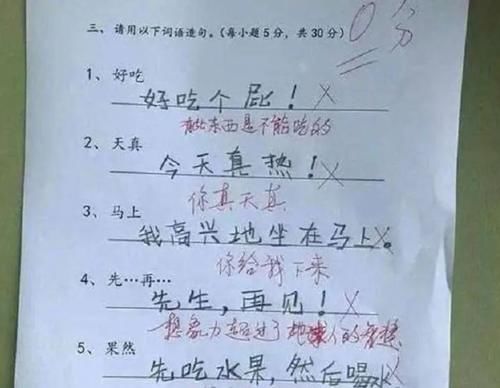 0分
三、请用以下词语造句。(每小题5分,共30分)
1、好吃
好吃个屁!
有些东西是不能吃的
2、天真
今天真热!
你真天真
3、马上
我高兴地坐在马上。
你给我下来
4、先…再…
先生,再见!
想象力超过了地球人的
5、果然
先吃水果,然后喝水